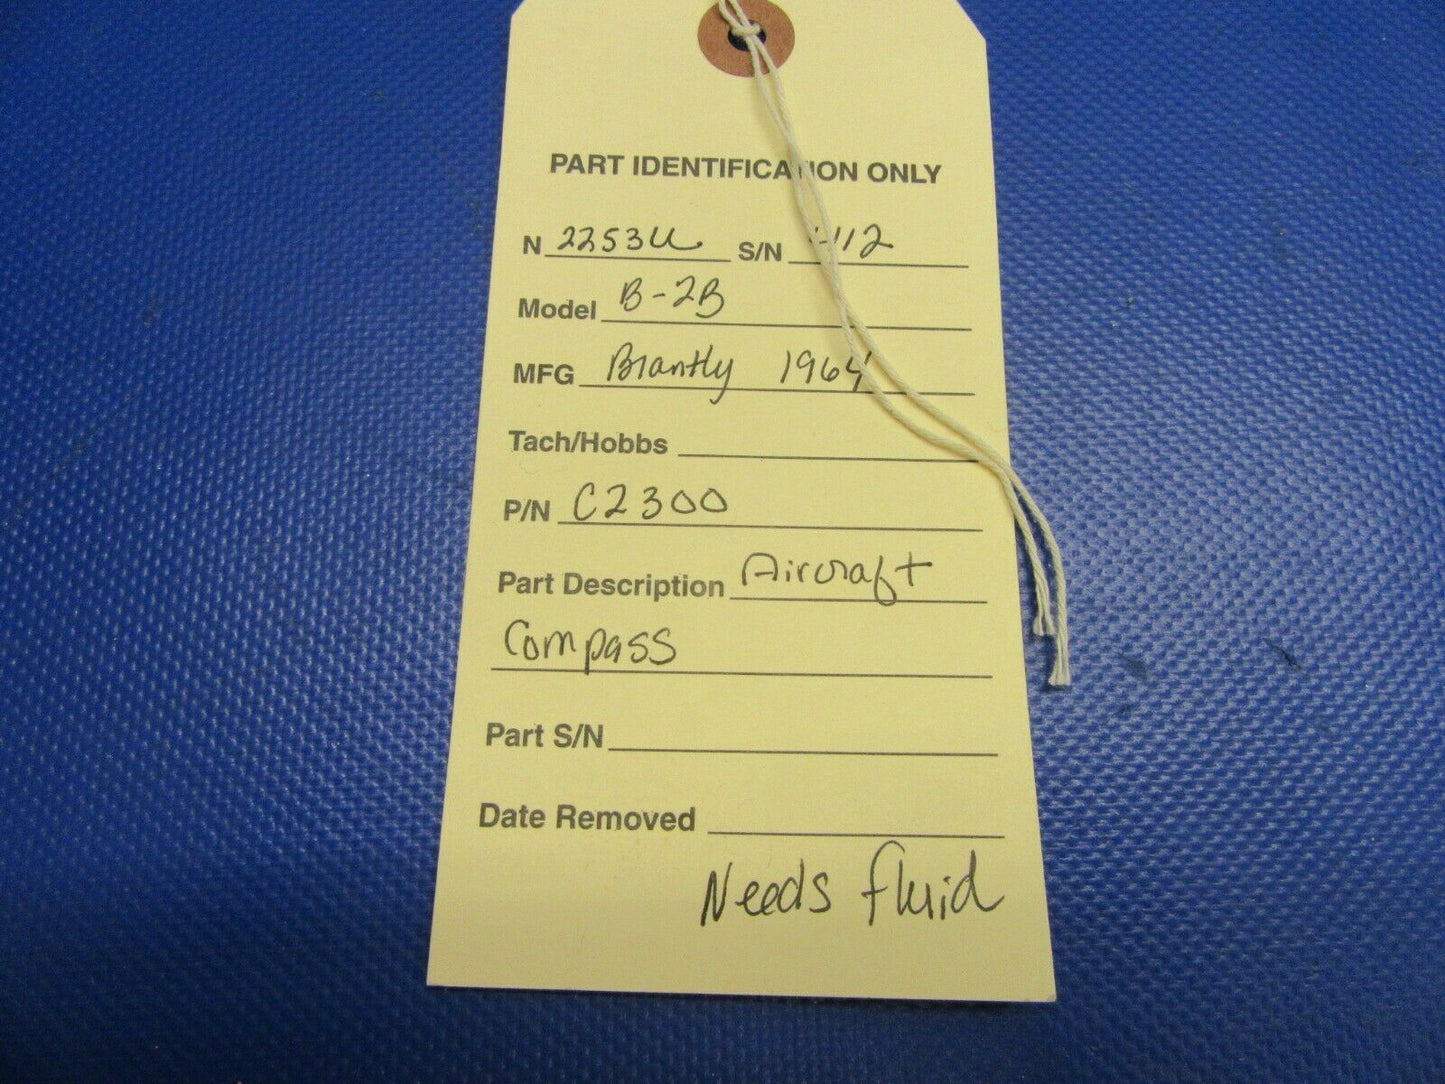 PART IDENTIFICATION ONLY
N 2253U S/N
Model B-2B
MFG Brantly 1964
Tach/Hobbs
P/N C2300
Part Description Aircraft
Compass
Part S/N
Date Removed
Needs fluid